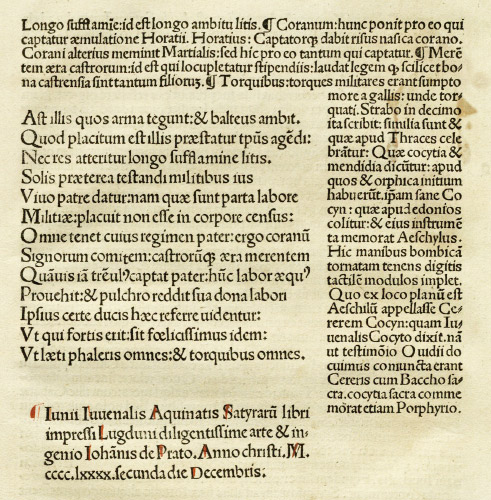 Longo sufflamie: id est longo ambitu litis. ¶ Coranum: hunc ponit pro eo qui
captatur æmulatione Horatii. Horatius: Captatorq; dabit risus nasica corano.
Corani alterius meminit Martialis: sed hic pro eo tantum qui captatur. ¶ Merē
tem æra castrorum: id est qui locupletatur stipendiis: laudat legem q̃ scilicet bo-
na castrensia sint tantum filiorū. ¶ Torquibus: torques militares erant sumpto
more a gallis: unde tor-
quati. Strabo in decimo
ita scribit: similia sunt &
quæ apud Thraces cele
brātur: Quæ cocytia &
mendidia dicūtur: apud
quos & orphica initium
habuerūt. ipām sane Co
cyn: quæ apud edonios
colitur: & eius instrumē
ta memorat Aeschylus.
Hic manibus bombicā
tornatam tenens digitis
tactilē modulos implet.
Quo ex loco planū est
Aeschilū appellasse Ce-
rerem Cocyn: quam Iu-
uenalis Cocyto dixit. nā
ut testimōio Ouidii do
cuimus coniuncta erant
Cereris cum Baccho sa-
cra. cocytia sacra comme
mōrat etiam Porphyrio.
Ast illis quos arma tegunt: & balteus ambit.
Quod placitum est illis præstatur tp̄us agēdi:
Nec res atteritur longo sufflamine litis.
Solis præterea testandi militibus ius
Viuo patre datur: nam quæ sunt parta labore
Militiæ: placuit non esse in corpore census:
Omne tenet cuius regimen pater: ergo coranū
Signorum comitem: castrorūq; æra merentem
Quāuis iā trēulꝰ captat pater: hūc labor æquꝰ
Prouehit: & pulchro reddit sua dona labori
Ipsius certe ducis hæc referre uidentur:
Vt qui fortis erit: sit fœlicissimus idem:
Vt læti phaleris omnes: & torquibus omnes.
¶ Iunii Iuuenalis Aquinatis Satyrarū libri
impressi Lugduni diligentissime arte & in-
genio Iohānis de Prato. Anno christi. M.
cccc. lxxxx. secunda die Decembris.